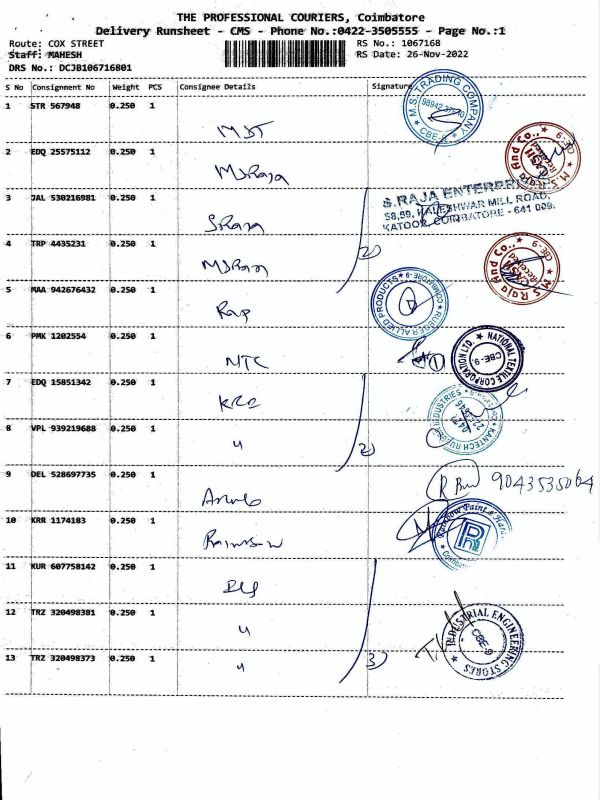 THE PROFESSIONAL COURIERS, Coimbatore
Delivery Runsheet - CMS - Phone No.:0422-3505555 - Page No.:1
Route: COX STREET RS No.: 1067168
Staff: MAHESH RS Date: 26-Nov-2022
DRS No.: DCJB106716801
S No Consignment No Weight PCS Consignee Details Signature
M.S. TRADING COMPANY CBE
1 STR 567948 0.250 1
MST
M.S Raja And Co., CBE-9 CASH Received
2 EDQ 25575112 0.250 1
MSRaja
3 JAL 530216981 0.250 1
S.RAJA ENTERPRISES
58,59, MILL ROAD,
KATOOR, COIMBATORE - 641 009.
SRaja
4 TRP 4435231 0.250 1
2)
M.S Raja And Co., CBE-9 CASH Received
MSRaja
5 MAA 942676432 0.250 1
RUBBER ALLIED PRODUCTS COIMBATORE-9
Rap
6 PMK 1202554 0.250 1
NATIONAL TEXTILE CORPORATION LTD. CBE-9
1
NTC
7 EDQ 15851342 0.250 1
KANTECH INDUSTRIES
8 VPL 939219688 0.250 1
"
2)
9 DEL 528697735 0.250 1
9043535064
10 KRR 1174183 0.250 1
Rainbow Paint
Rainbow
11 KUR 607758142 0.250 1
12 TRZ 320498381 0.250 1
"
INDUSTRIAL ENGINEERING STORES CBE-9
13 TRZ 320498373 0.250 1
"
3)